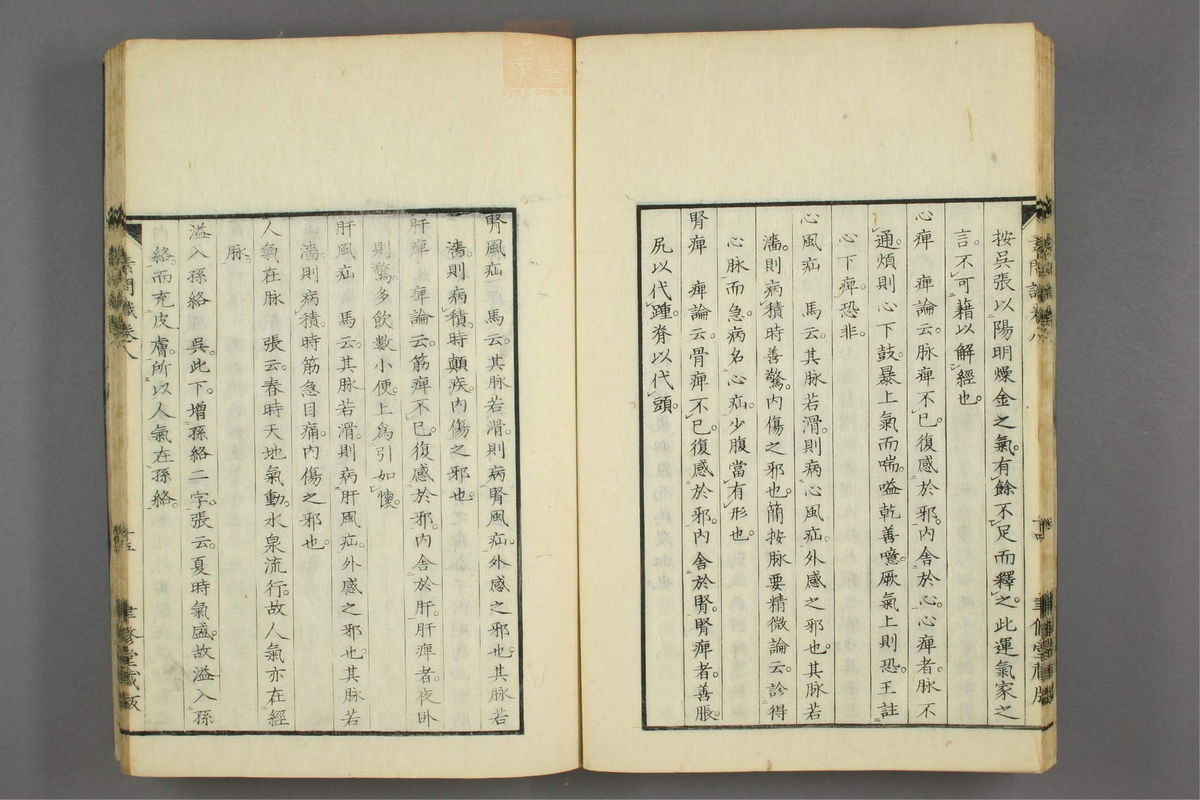 按吳張以陽明燥金之氣。有餘不足而釋之。此運氣家之
言。不可藉以解經也。
心痺　痺論云。脉痺不已。復感於邪。內舍於心。心痺者。脉不
通。煩則心下鼓。暴上氣而喘。嗌乾善噫。厥氣上則恐。王註
心下痺。恐非。
心風疝　馬云。其脉若滑。則病心風疝。外感之邪也。其脉若
濇。則病積。時善驚。內傷之邪也。簡按脉要精微論云。診得
心脉而急。病名心疝。少腹當有形也。
腎痺　痺論云。骨痺不已。復感於邪。內舍於腎。腎痺者。善脹。
尻以代踵。脊以代頭。
聿修堂藏版
腎風疝　馬云。其脉若滑。則病腎風疝。外感之邪也。其脉若
濇。則病積。時顛疾。內傷之邪也。
肝痺　痺論云。筋痺不已。復感於邪。內舍於肝。肝痺者。夜臥
則驚。多飲數小便。上爲引如懷。
肝風疝　馬云。其脉若滑。則病肝風疝。外感之邪也。其脉若
濇。則病積。時筋急目痛。內傷之邪也。
人氣在脉　張云。春時天地氣動。水泉流行。故人氣亦在經
脉。
溢入孫絡　吳。此下。增孫絡二字。張云。夏時氣盛。故溢入孫
絡。而充皮膚。所以人氣在孫絡。
素問識卷八
十五
聿修堂藏版